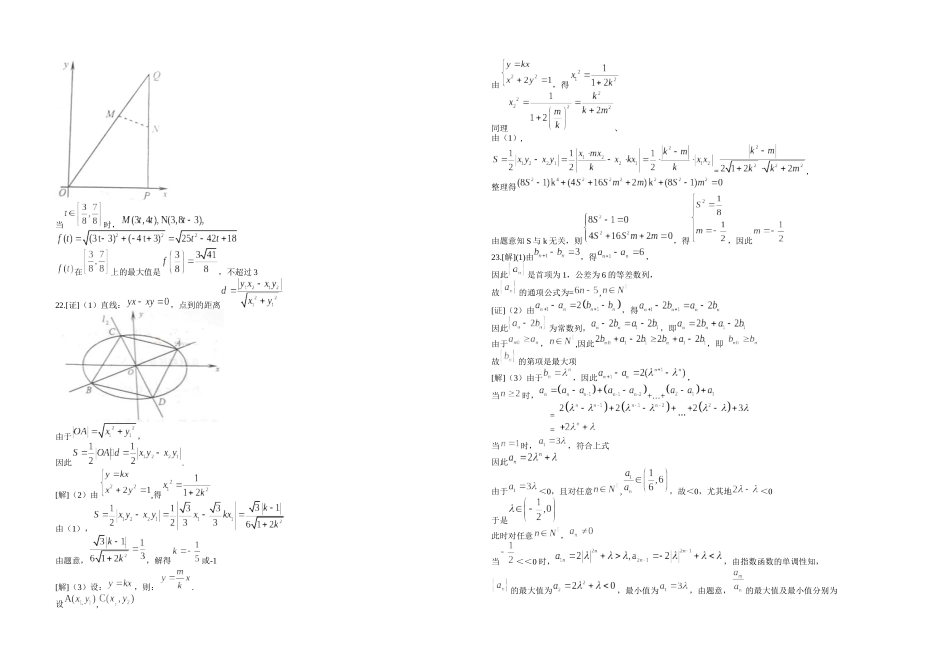 y
Q
M
N
O
P
x
当 t∈[3/8, 7/8] 时, M(3t,4t), N(3,8t 3),
f(t) √(3t 3)² ( 4t 3)² √25t² 42t 18
f(t) 在 [3/8, 7/8] 上的最大值是 f(3/8) 3√41/8 ，不超过 3
22.[证]（1）直线: y₁x x₁y 0 ，点到的距离 d |y₁x₂ x₁y₂| / √x₁² y₁²
l₂
y
C
A
x
O
B
D
由于 |OA| √x₁² y₁² ，
因此 S 1/2 |OA| d 1/2 |x₁y₂ x₂y₁| .
[解]（2）由 { y kx x² 2y² 1 ,得 x₁² 1/(1 2k²)
由（1）， S 1/2 |x₁y₂ x₂y₁| 1/2 |√3/3 x₁ √3/3 kx₁| √3|k 1| / 6√1 2k²
由题意, √3|k 1| / 6√1 2k² 1/3 ，解得 k 1/5 或-1
[解]（3）设: y kx ，则: y m/k x .
设 A(x₁,y₁) , C(x₂,y₂)
由 { y kx x² 2y² 1 ，得 x₁² 1/(1 2k²)
同理 x₂² 1/(1 2(m/k)²) k²/(k² 2m²) 、
由（1）,
S 1/2 |x₁y₂ x₂y₁| 1/2 |x₁ mx₂/k x₂ kx₁| 1/2 |k² m|/|k| |x₁x₂| = |k² m| / 2√1 2k² √k² 2m² ,
整理得 (8S² 1)k⁴ (4S² 16S²m² 2m)k² (8S² 1)m² 0
由题意知 S 与 k 无关，则 { 8S² 1 0 4S² 16S²m² 2m 0 ，得 { S² 1/8 m 1/2 ，因此 m 1/2
23.[解](1)由 bₙ₊₁ bₙ 3 ，得 aₙ₊₁ aₙ 6 ,
因此 aₙ 是首项为 1，公差为 6 的等差数列，
故 aₙ 的通项公式为= 6n 5 , n N
[证]（2）由 aₙ₊₁ aₙ 2 bₙ₊₁ bₙ ，得 aₙ₊₁ 2bₙ₊₁ aₙ 2bₙ
因此 aₙ 2bₙ 为常数列， aₙ 2bₙ a₁ 2b₁ ，即 aₙ 2bₙ a₁ 2b₁
由于 aₙ₀ aₙ , n N ,因此 2bₙ₀ a₁ 2b₁ 2bₙ a₁ 2b₁ ，即 bₙ₀ bₙ
故 bₙ 的第项是最大项
[解]（3）由于 bₙ λⁿ ，因此 aₙ₊₁ aₙ 2(λⁿ⁺¹ λⁿ) ,
当 n 2 时, aₙ aₙ aₙ₋₁ aₙ₋₁ aₙ₋₂ +…+ a₂ a₁ a₁
= 2 λⁿ λⁿ⁻¹ 2 λⁿ⁻¹ λⁿ⁻² … 2 λ² λ 3λ
= 2λⁿ λ
当 n 1 时， a₁ 3λ ，符合上式
因此 aₙ 2λⁿ λ
由于 a₁ 3λ <0，且对任意 n N , a₁/aₙ 1/6, 6 ，故<0，尤其地 2λ² λ <0
于是 λ 1/2, 0
此时对任意 n N , aₙ 0
当 1/2 <<0 时, a₂ₙ 2|λ|²ⁿ λ λ, a₂ₙ₋₁ 2|λ|²ⁿ⁻¹ λ λ ，由指数函数的单调性知,
aₙ 的最大值为 a₂ 2λ² λ 0 ，最小值为 a₁ 3λ ，由题意， aₘ/aₙ 的最大值及最小值分别为